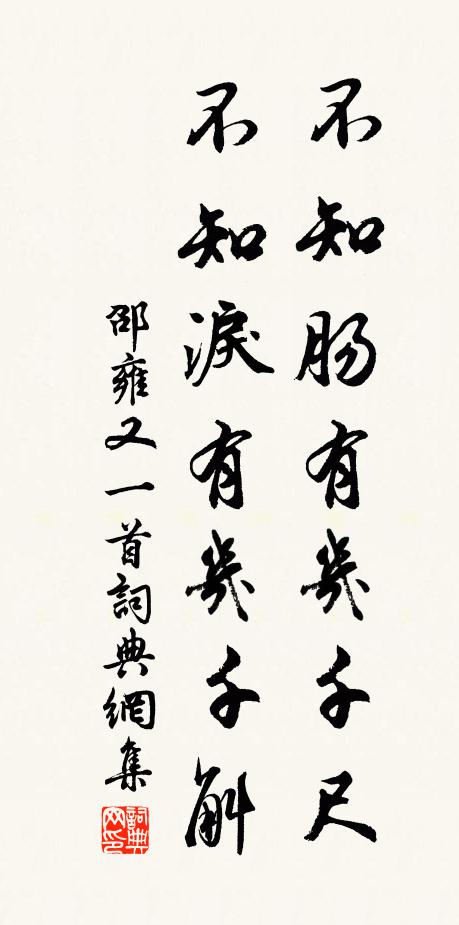 不知肠有幾千尺
不知淚有幾千斛
邵雍又一首詞典網集
詞典
网印